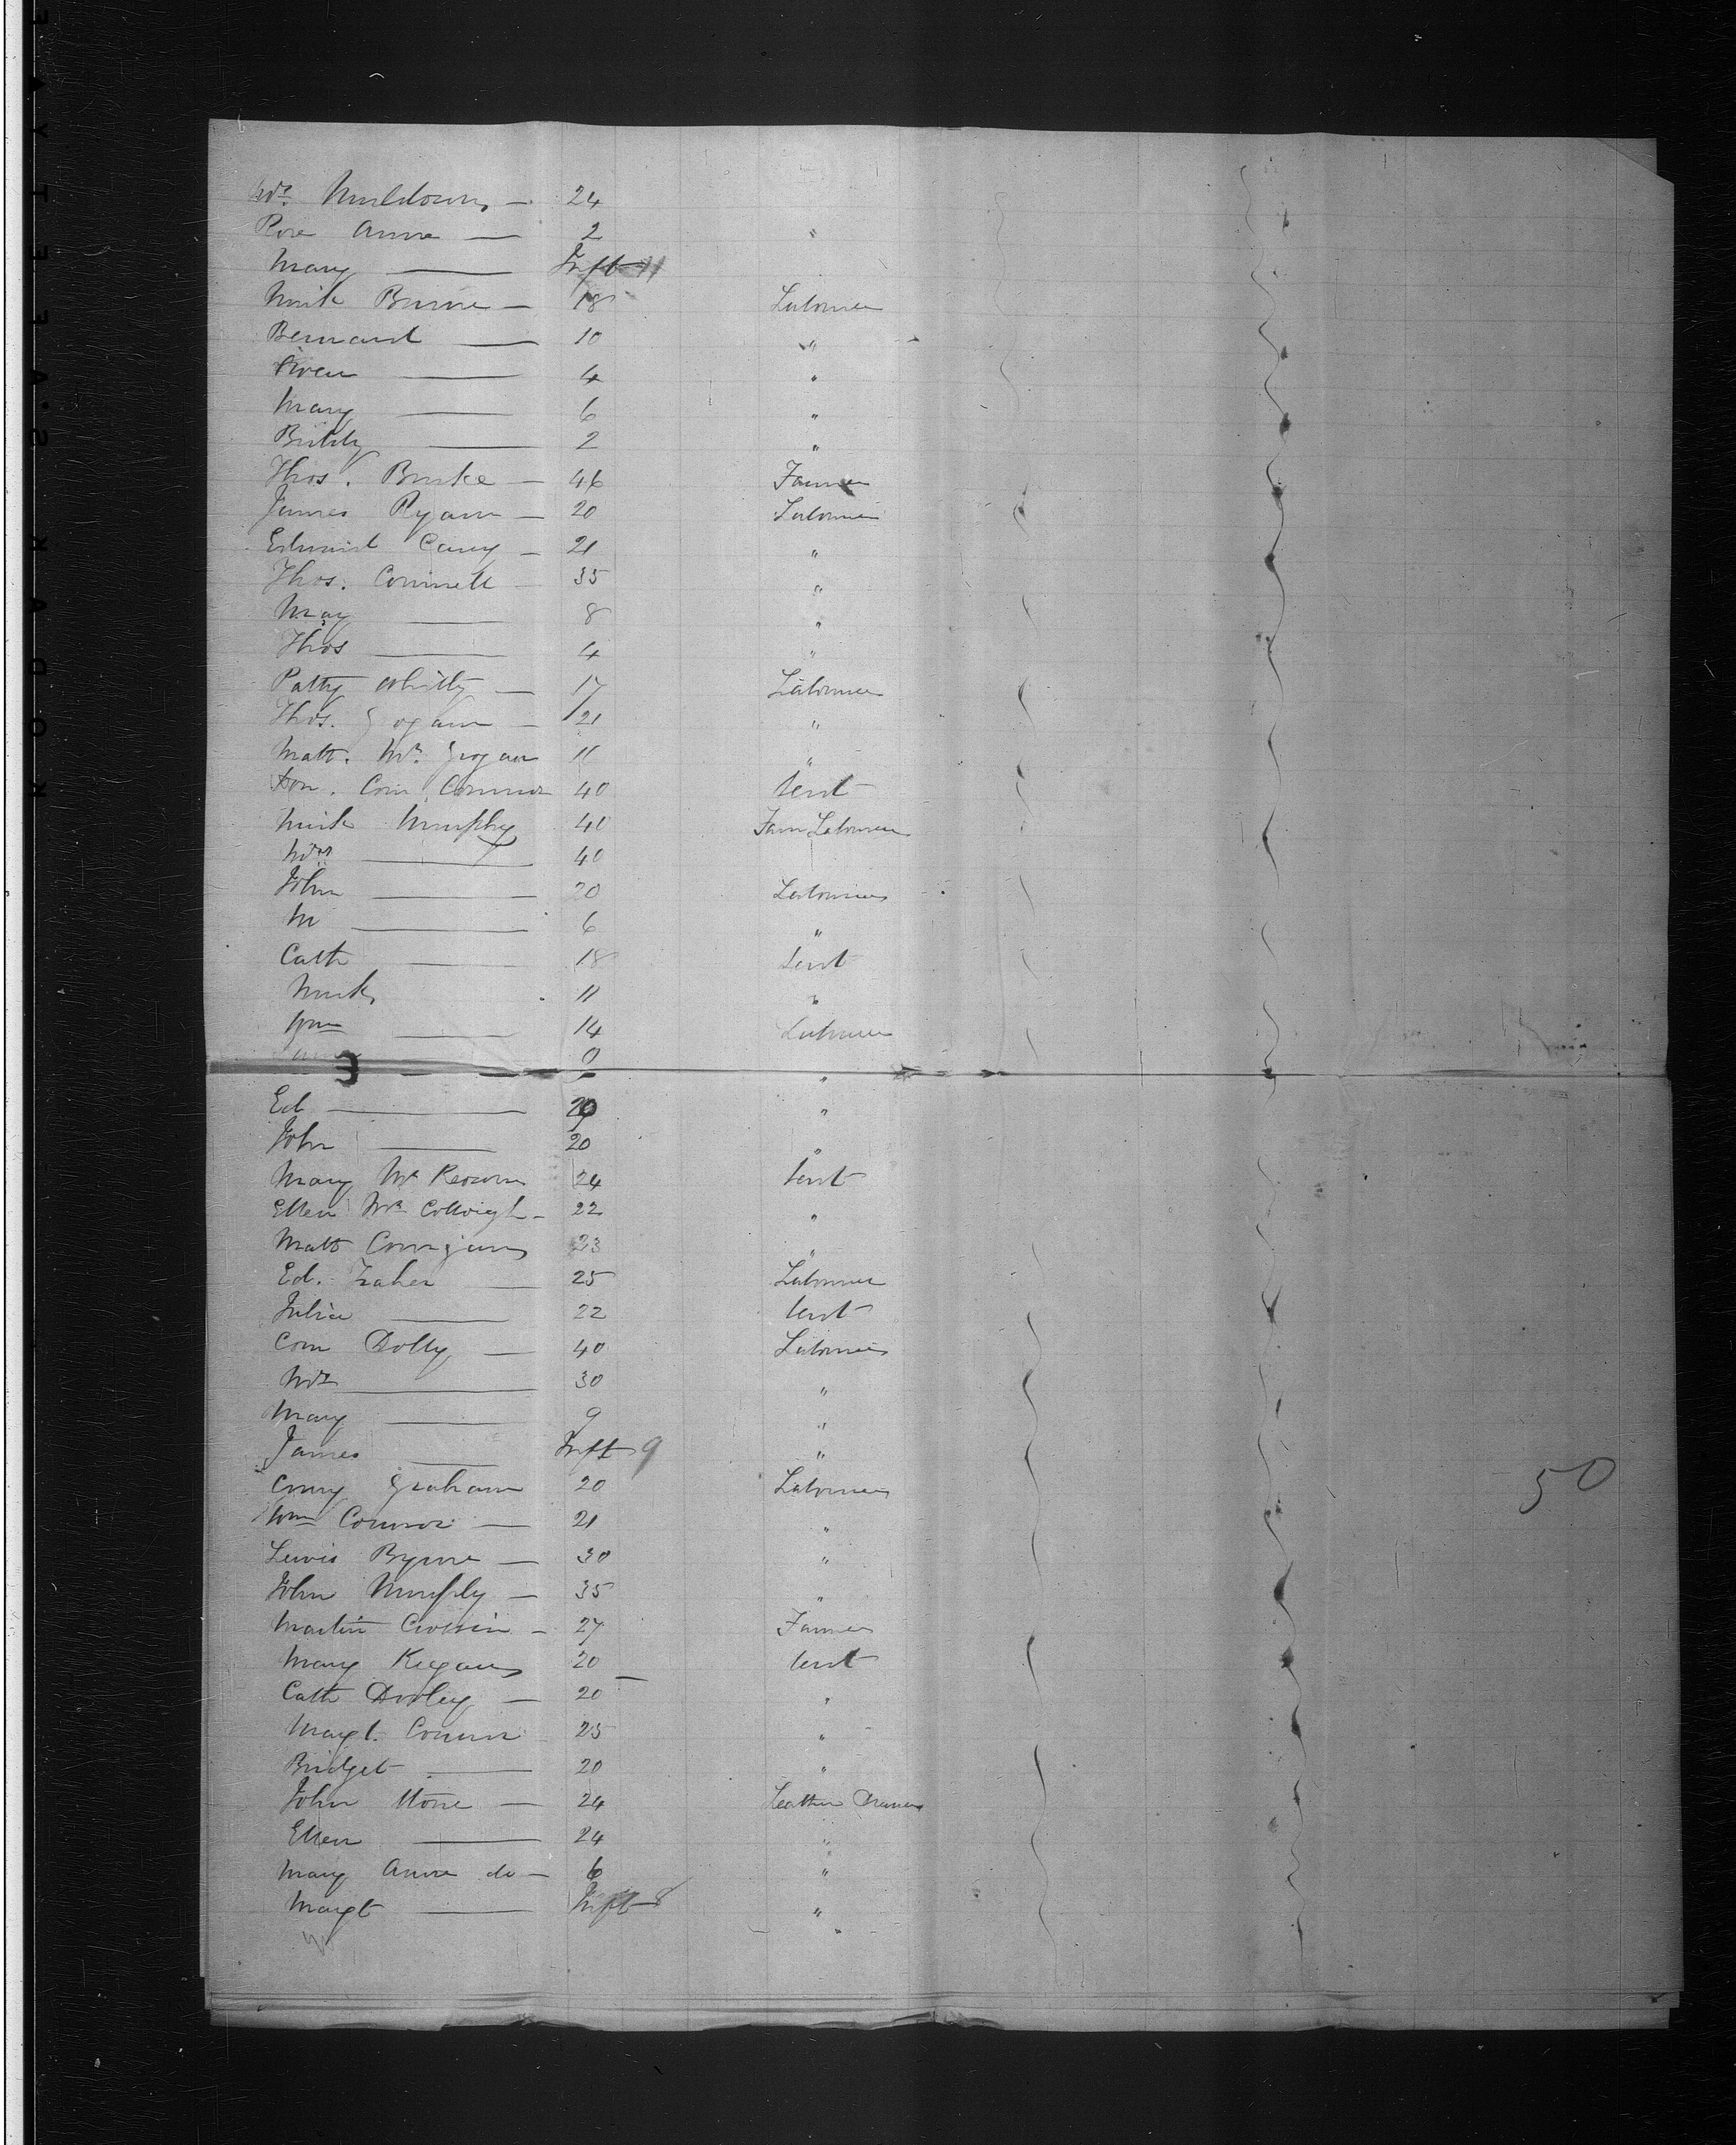 Mrs. Muldowny — 24
Rose Anne — 2 "
Mary — Inft 11
Mich Burne — 18 Labourer
Bernard — 10 "
Owen — 4 "
Mary — 6 "
Biddy — 2 "
Thos. Burke — 46 Farmer
James Ryan — 20 Labourer
Edward Carey — 21 "
Thos. Connell — 35 "
May — 8 "
Thos — 4 "
Patty Whitty — 17 Labourer
Thos. Gogan — 21 "
Matt. Mc. Grogan 11 "
Con. Connor 40 Servt
Mick Murphy 40 Farm Labourer
Mrs — 40
John — 20 Labourer
M — 6 "
Cath — 18 Servt
Mick 11 "
Wm — 14 Labourer
"
Ed — "
John — 20 "
Mary Mc Keown 24 Servt
Ellen Mc — 22 "
Matt 23 "
Ed. Fraher — 25 Labourer
Julia — 22 Servt
Corn Dolly — 40 Labourer
Mrs — 30 "
Mary — 9 "
James — Inft 9 "
Graham 20 Labourer
Wm Connor — 21 "
Lewis Byrne — 30 "
John Murphy — 35 "
Martin Crossin — 27 Farmer
Mary Kegan 20 Servt
Cath Dooley — 20 "
Margt. Connor 25 "
Bridget — 20 "
John Stone — 24 Leather Dresser
Ellen — 24 "
Mary Anne do — 6 "
Margt — Inft 8 "
50